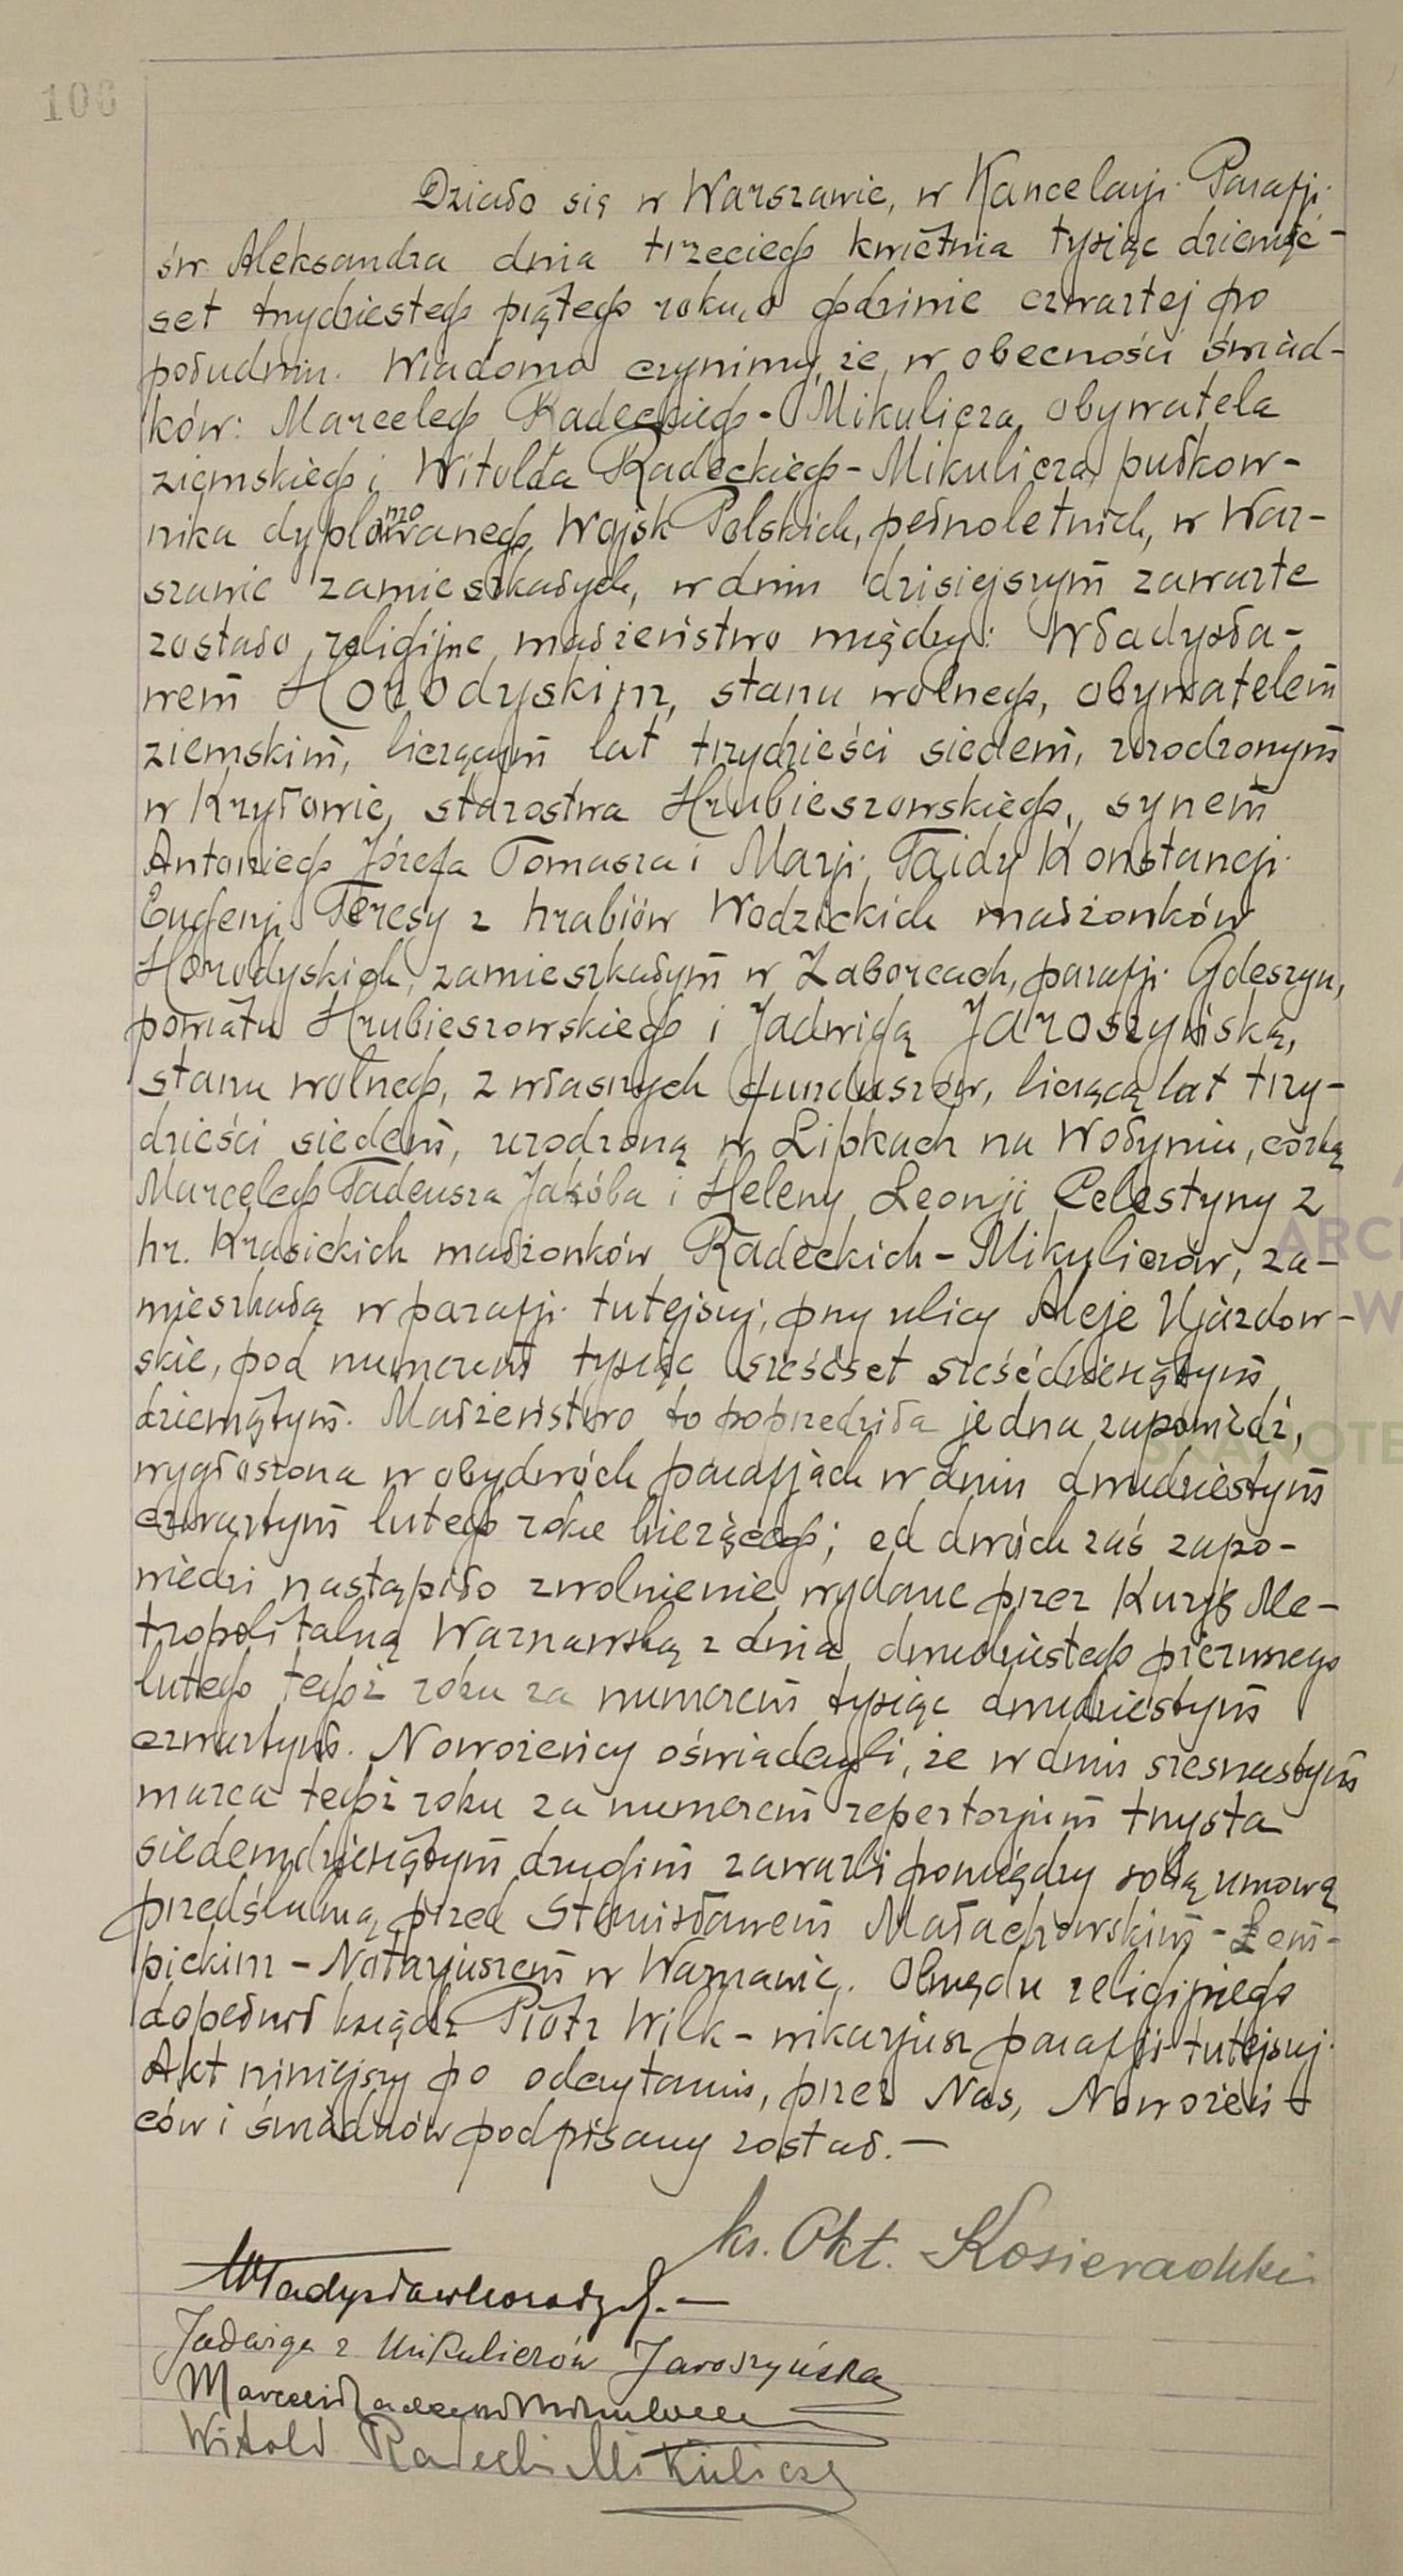 106
Działo się w Warszawie, w Kancelarji Parafji
św Aleksandra dnia trzeciego kwietnia tysiąc dziewięć-
set trzydziestego piątego roku, o godzinie czwartej po
południu. Wiadomo czynimy, że w obecności świad-
ków: Marcelego Radeckiego-Mikulicza, obywatela
ziemskiego i Witolda Radeckiego-Mikulicza pułkow-
nika dyplomowanego Wojsk Polskich, pełnoletnich, w War-
szawie zamieszkałych, w dniu dzisiejszym zawarte
zostało religijne małżeństwo między: Władysła-
wem Horodyskim, stanu wolnego, obywatelem
ziemskim, liczącym lat trzydzieści siedem, urodzonym
w Kryłowie, starostwa Hrubieszowskiego, synem
Antoniego Józefa Tomasza i Marji Taidy Konstancji
Eugenji Teresy z hrabiów Wodzickich małżonków
Horodyskich, zamieszkałym w Zaborcach, parafji Gdeszyn,
powiatu Hrubieszowskiego i Jadwigą Jaroszyńską,
stanu wolnego, z własnych funduszów, liczącą lat trzy-
dzieści siedem, urodzoną w Lipkach na Wołyniu, córką
Marcelego Tadeusza Jakóba i Heleny Leonji Celestyny z
hr. Krasickich małżonków Radeckich-Mikuliczów, za-
mieszkałą w parafji tutejszej, przy ulicy Aleje Ujazdow-
skie, pod numerem tysiąc sześćset sześćdziesiątym
dziewiątym. Małżeństwo to poprzedziła jedna zapowiedź,
wygłoszona w obydwóch parafjach w dniu dwudziestym
czwartym lutego roku bieżącego; od dwóch zaś zapo-
wiedzi nastąpiło zwolnienie wydane przez Kurję Me-
tropolitalną Warszawską z dnia dwudziestego pierwszego
lutego tegoż roku za numerem tysiąc dwudziestym
czwartym. Nowożeńcy oświadczyli, że w dniu szesnastym
marca tegoż roku za numerem repertorjum trzysta
siedemdziesiątym drugim zawarli pomiędzy sobą umowę
przedślubną przed Stanisławem Małachowskim-Łem-
pickim - Notarjuszem w Warszawie. Obrzędu religijnego
dopełnił ksiądz Piotr Wilk - wikarjusz parafji tutejszej.
Akt niniejszy po odczytaniu, przez Nas, Nowożeń-
ców i świadków podpisany został. —
ks. Okt. Kosieradzki
Władysław Horodyski. —
Jadwiga z Mikuliczów Jaroszyńska
Marceli Radecki Mikulicz
Witold Radecki Mikulicz